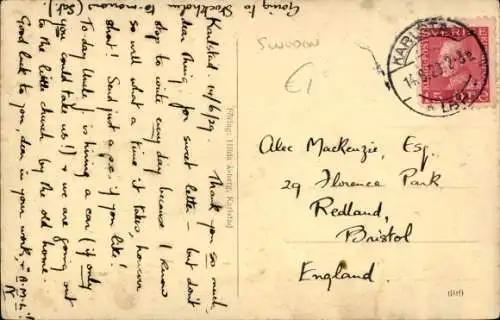 Going to Stockholm
to-morrow (Sat.)
SWEDEN
£1
Karlstad. 14/6/29.
Thank you so much,
dear thing, for sweet letter – but don't
stop to write every day because I know
so well what a time it takes, however
short! Send just a p.c. if you like!
To-day Uncle J. is hiring a car (if only
you could take us!) & we are going out
to the little church by the old home.
Good luck to you, dear, in your work, &
Förlag: Hilda Åsberg, Karlstad
KARLSTAD
SVERIGE
Alec MacKenzie, Esq.
29 Florence Park
Redland,
Bristol
England.